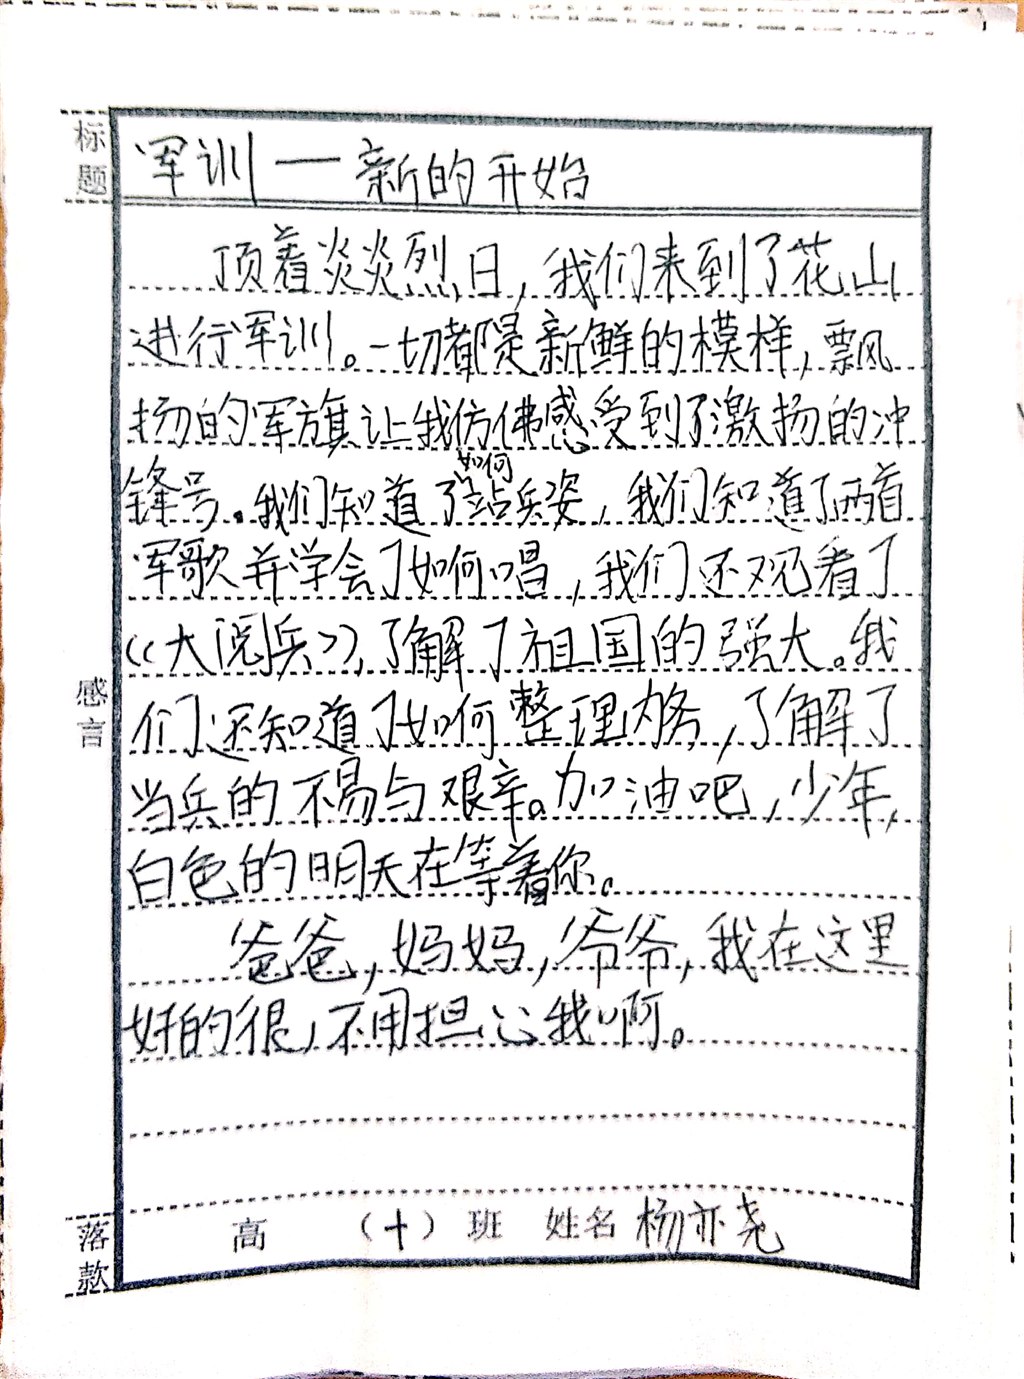 标题
军训—新的开始
顶着炎炎烈日,我们来到了花山
进行军训。一切都是新鲜的模样,飘
扬的军旗让我仿佛感受到了激扬的冲
锋号。我们知道了如何站兵姿,我们知道了两首
军歌并学会了如何唱,我们还观看了
《大阅兵》,了解了祖国的强大。我
们还知道了如何整理内务,了解了
当兵的不易与艰辛。加油吧,少年,
白色的明天在等着你。
爸爸,妈妈,爷爷,我在这里
好的很,不用担心我啊。
感言
落款
高 (十)班 姓名 杨亦尧